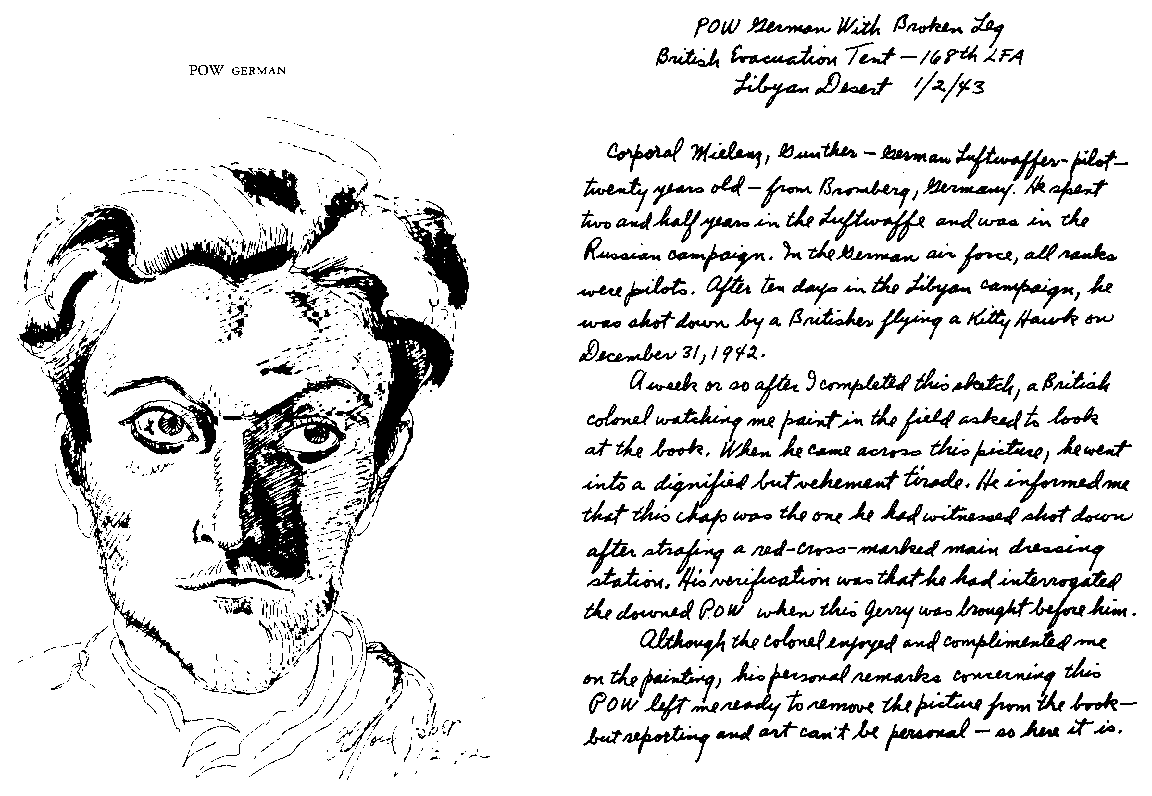 POW GERMAN
POW German With Broken Leg
British Evacuation Tent — 168th LFA
Libyan Desert 1/2/43
Corporal Mielenz, Gunther — German Luftwaffer-pilot —
twenty years old — from Bromberg, Germany. He spent
two and half years in the Luftwaffe and was in the
Russian campaign. In the German air force, all ranks
were pilots. After ten days in the Libyan campaign, he
was shot down by a Britisher flying a Kitty Hawk on
December 31, 1942.
A week or so after I completed this sketch, a British
colonel watching me paint in the field asked to look
at the book. When he came across this picture, he went
into a dignified but vehement tirade. He informed me
that this chap was the one he had witnessed shot down
after strafing a red-cross-marked main dressing
station. His verification was that he had interrogated
the downed POW when this Gerry was brought before him.
Although the colonel enjoyed and complimented me
on the painting, his personal remarks concerning this
POW left me ready to remove the picture from the book —
but reporting and art can't be personal — so here it is.